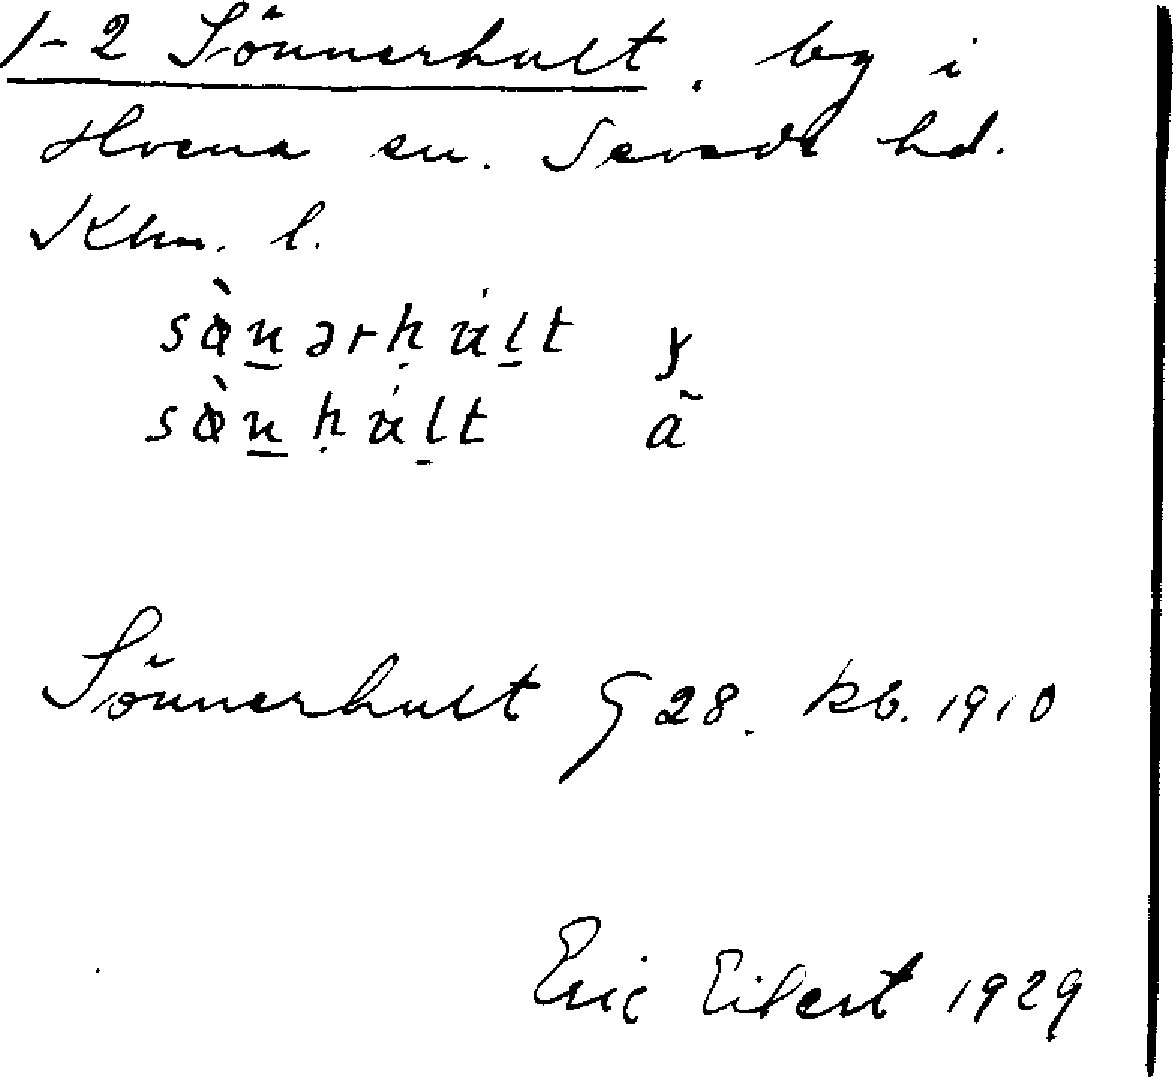 1-2 Sönnerhult. by i
Hvena sn. Sevede hd.
Klm. l.
sὰn̲ərḥúl̲t y
sὰn̲ḥúl̲t ã
Sönnerhult G 28. kb. 1910
Eric Eilert 1929